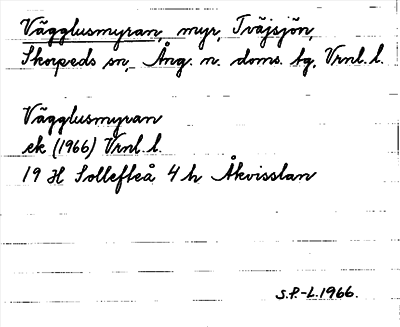 Vägglusmyran, myr, Tväjsjön,
Skorpeds sn, Ång. n. doms. tg, Vrnl. l.
Vägglusmyran
ek (1966) Vrnl. l.
19 H Sollefteå 4 h Åkvisslan
S.P.-L. 1966.